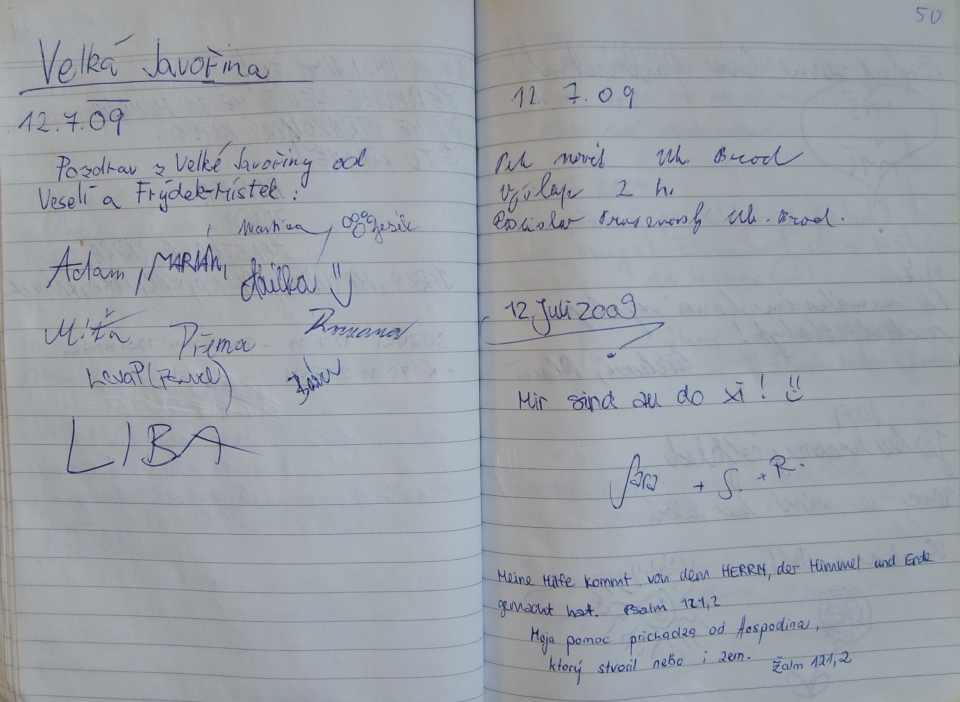 Velká Javořina
12.7.09
Pozdrav z Velké Javořiny od
Veselí a Frýdek-Místek:
Martina, Jesik
Adam, MARIAN,
Míťa Přema Romana
LevaP (Pavel)
LIBA
50
12. 7. 09
Petr Uh. Brod
2 h.
Uh. Brod.
12. Juli 2009
Mir sind au do xi!
+ S. + R.
Meine Hilfe kommt von dem HERRN, der Himmel und Erde
gemacht hat. Psalm 121,2
Moja pomoc prichadza od Hospodina,
ktorý stvoril nebo i zem. Žalm 121,2